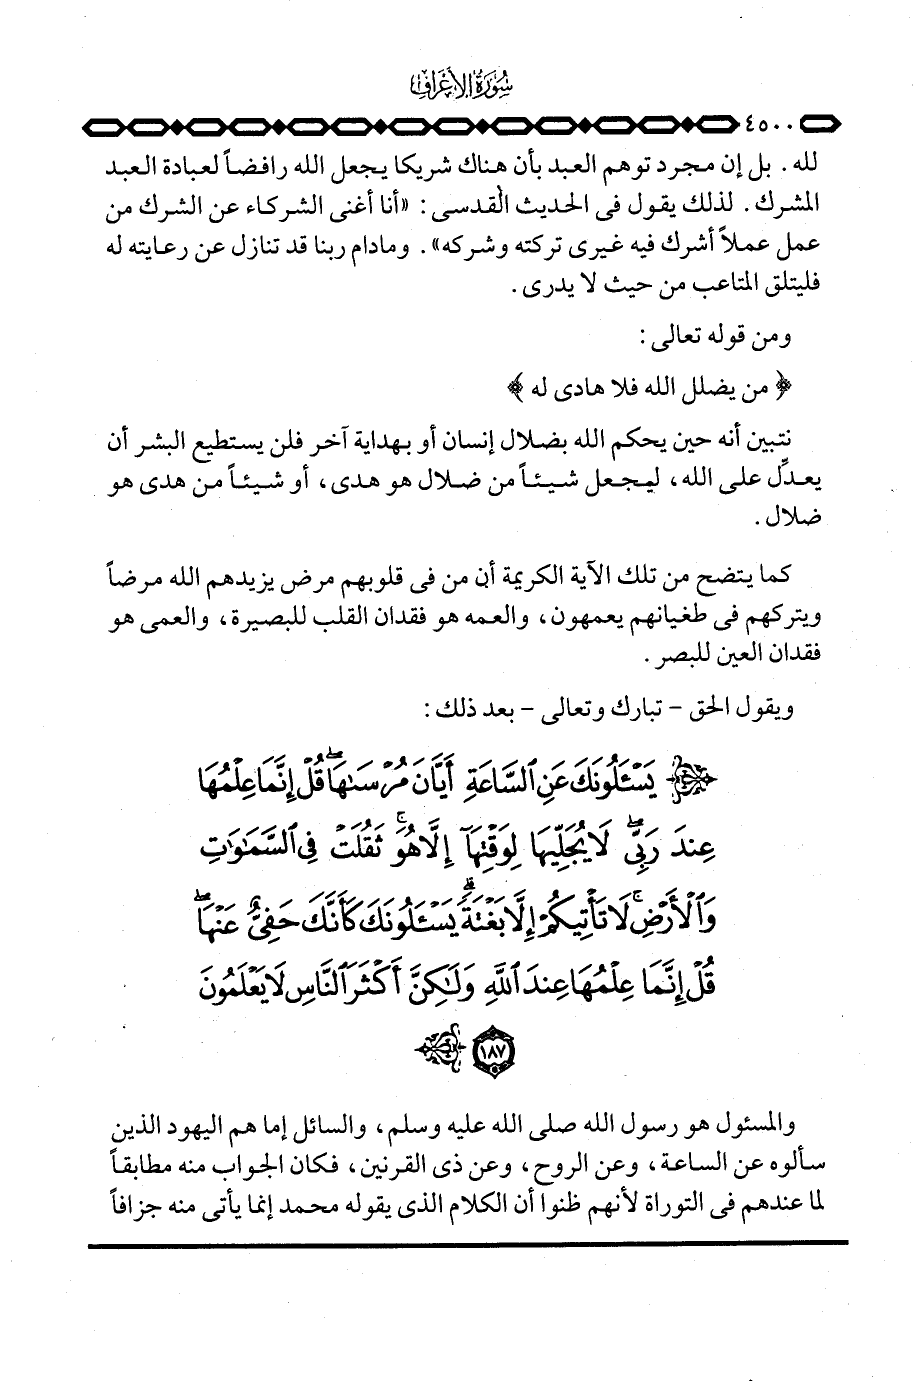 سورة الأعراف
٤٥٠٠
لله . بل إن مجرد توهم العبد بأن هناك شريكا يجعل الله رافضاً لعبادة العبد
المشرك . لذلك يقول فى الحديث القدسى : «أنا أغنى الشركاء عن الشرك من
عمل عملاً أشرك فيه غيرى تركته وشركه» . ومادام ربنا قد تنازل عن رعايته له
فليتلق المتاعب من حيث لا يدرى .
ومن قوله تعالى :
﴿ من يضلل الله فلا هادى له ﴾
نتبين أنه حين يحكم الله بضلال إنسان أو بهداية آخر فلن يستطيع البشر أن
يعدِّل على الله ، ليجعل شيئاً من ضلال هو هدى ، أو شيئاً من هدى هو
ضلال .
كما يتضح من تلك الآية الكريمة أن من فى قلوبهم مرض يزيدهم الله مرضاً
ويتركهم فى طغيانهم يعمهون ، والعمه هو فقدان القلب للبصيرة ، والعمى هو
فقدان العين للبصر .
ويقول الحق – تبارك وتعالى – بعد ذلك :
﴿ يَسْـَٔلُونَكَ عَنِ ٱلسَّاعَةِ أَيَّانَ مُرْسَىٰهَا ۖ قُلْ إِنَّمَا عِلْمُهَا
عِندَ رَبِّى ۖ لَا يُجَلِّيهَا لِوَقْتِهَآ إِلَّا هُوَ ۚ ثَقُلَتْ فِى ٱلسَّمَـٰوَٰتِ
وَٱلْأَرْضِ ۚ لَا تَأْتِيكُمْ إِلَّا بَغْتَةً ۗ يَسْـَٔلُونَكَ كَأَنَّكَ حَفِىٌّ عَنْهَا ۖ
قُلْ إِنَّمَا عِلْمُهَا عِندَ ٱللَّهِ وَلَـٰكِنَّ أَكْثَرَ ٱلنَّاسِ لَا يَعْلَمُونَ
١٨٧ ﴾
والمسئول هو رسول الله صلى الله عليه وسلم ، والسائل إما هم اليهود الذين
سألوه عن الساعة ، وعن الروح ، وعن ذى القرنين ، فكان الجواب منه مطابقاً
لما عندهم فى التوراة لأنهم ظنوا أن الكلام الذى يقوله محمد إنما يأتى منه جزافاً